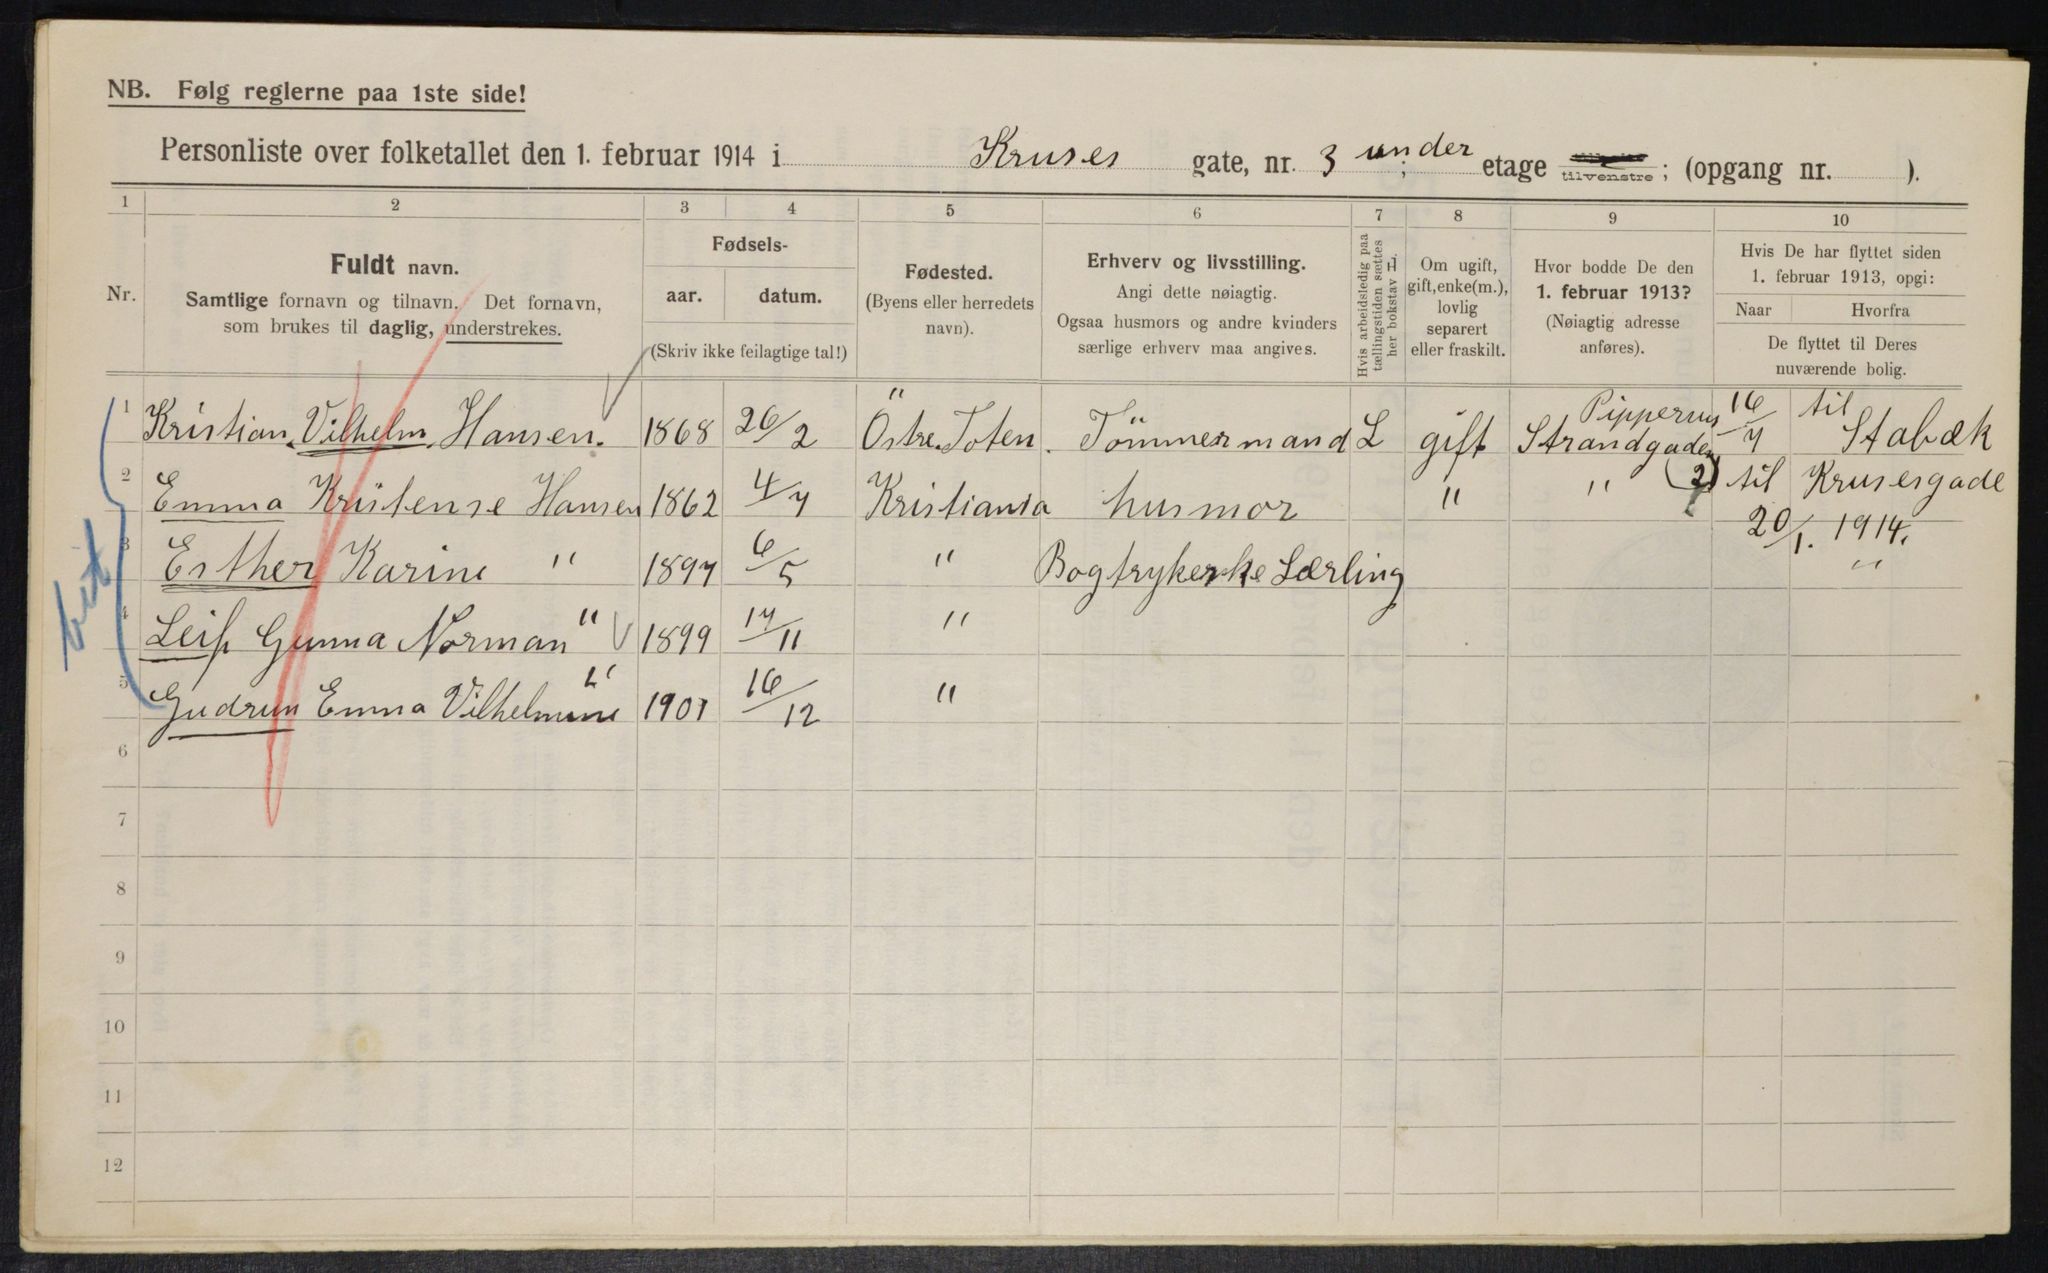 NB. Følg reglerne paa 1ste side!
Personliste over folketallet den 1. februar 1914 i Kruses gate, nr. 3 ; under etage tilvenstre ; (opgang nr. ).
1 2 3 4 5 6 7 8 9 10
Nr.
Fuldt navn.
Samtlige fornavn og tilnavn. Det fornavn,
som brukes til daglig, understrekes.
Fødsels-
aar. datum.
(Skriv ikke feilagtige tal!)
Fødested.
(Byens eller herredets
navn).
Erhverv og livsstilling.
Angi dette nøiagtig.
Ogsaa husmors og andre kvinders
særlige erhverv maa angives.
Hvis arbeidsledig paa
tællingstiden sættes
her bokstav L.
Om ugift,
gift, enke(m.),
lovlig
separert
eller fraskilt.
Hvor bodde De den
1. februar 1913?
(Nøiagtig adresse
anføres).
Hvis De har flyttet siden
1. februar 1913, opgi:
Naar Hvorfra
De flyttet til Deres
nuværende bolig.
1 Kristian Vilhelm Hansen. 1868 26/2 Östre Toten. Tömmermand L gift Strandgaden 16/7 til Stabæk
2 Emma Kristense Hansen 1862 4/7 Kristiania husmor " " til Krusesgade
20/1. 1914.
3 Esther Karine " 1897 6/5 " Bogtrykerke Lærling "
4 Leif Gunna Norman " 1899 17/11 "
5 Gudrun Emma Vilhelmine " 1901 16/12 "
6
7
8
9
10
11
12